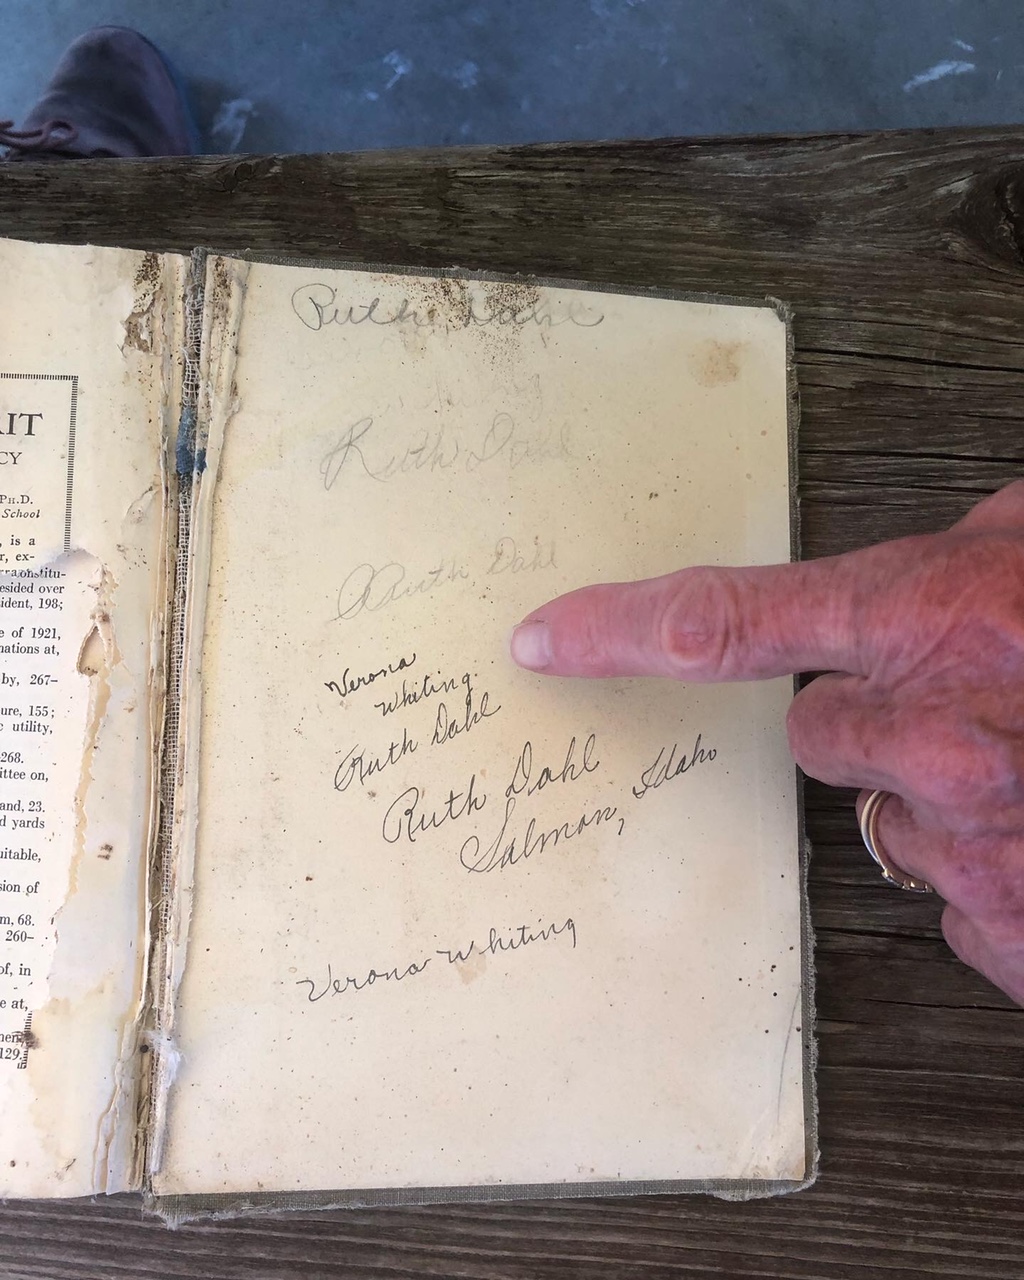 AIT
CY
PH.D.
School
, is a
r, ex-
onstitu-
esided over
ident, 198;
e of 1921,
nations at,
by, 267–
ure, 155;
c utility,
268.
ittee on,
and, 23.
d yards
uitable,
sion of
m, 68.
260–
of, in
e at,
129.
Ruth Dahl
Ruth Dahl
Ruth Dahl
Verona
Whiting.
Ruth Dahl
Ruth Dahl
Salmon, Idaho
Verona Whiting